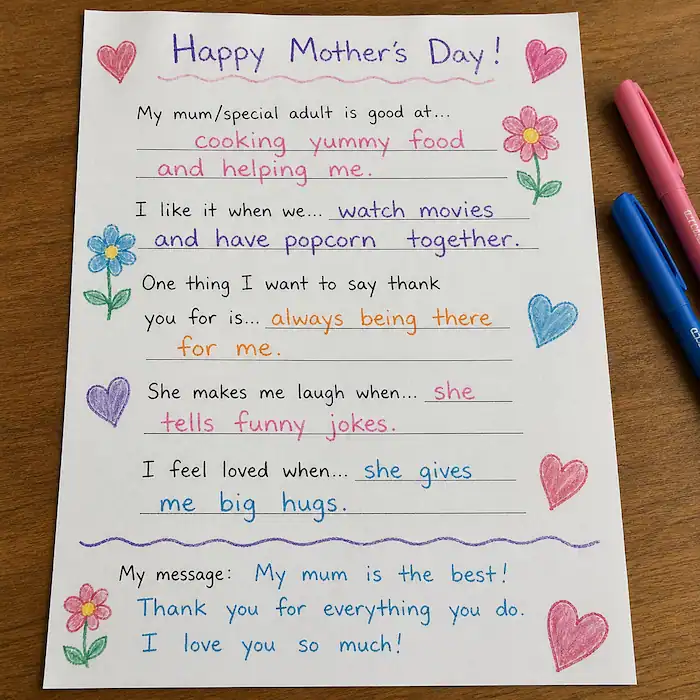 Happy Mother's Day!
My mum/special adult is good at...
cooking yummy food
and helping me.
I like it when we... watch movies
and have popcorn together.
One thing I want to say thank
you for is... always being there
for me.
She makes me laugh when... she
tells funny jokes.
I feel loved when... she gives
me big hugs.
My message: My mum is the best!
Thank you for everything you do.
I love you so much!